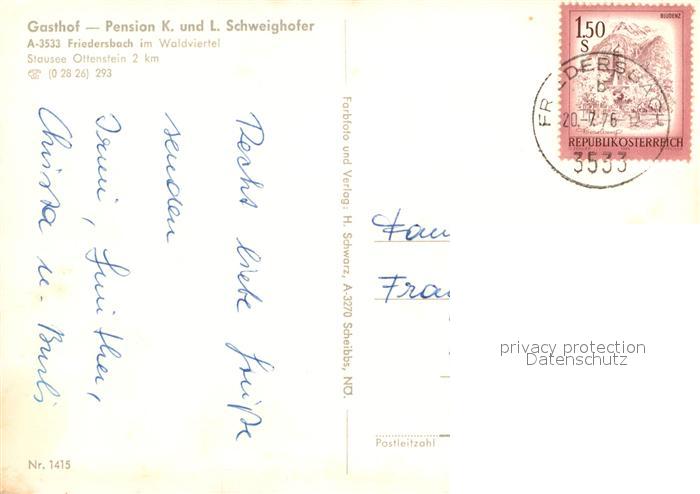 Gasthof — Pension K. und L. Schweighofer
A-3533 Friedersbach im Waldviertel
Stausee Ottenstein 2 km
☎ (0 28 26) 293
Recht liebe Grüße
senden
Christa u. Burli
Nr. 1415
Farbfoto und Verlag: H. Schwarz, A-3270 Scheibbs, NÖ.
BLUDENZ
1.50
S
REPUBLIK ÖSTERREICH
FRIEDERSBACH
b
20.-7.76
3533
Fam
Frau
Postleitzahl
privacy protection
Datenschutz